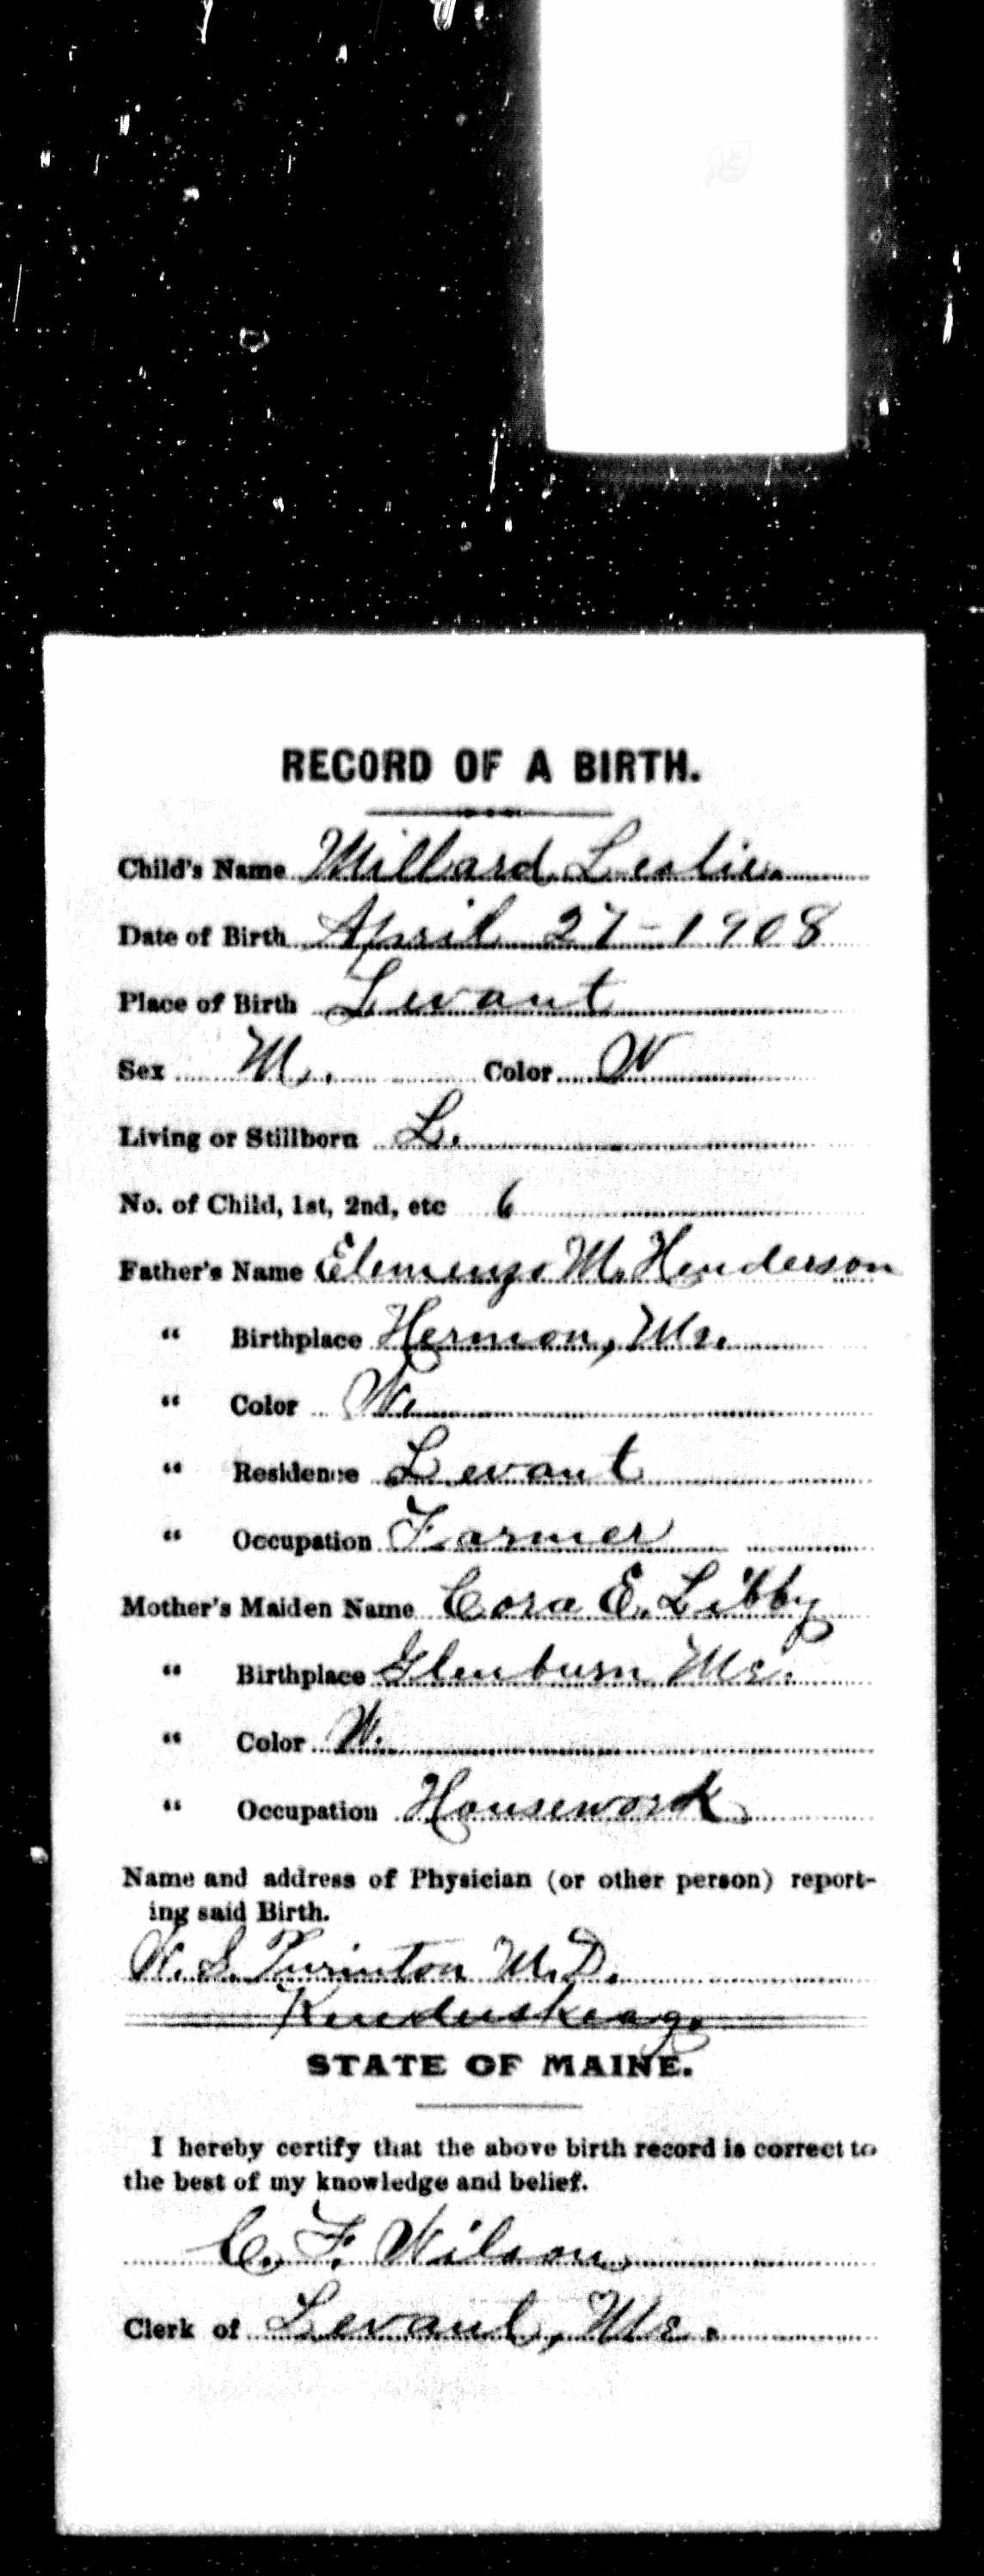 RECORD OF A BIRTH.
Child's Name Millard Leslie
Date of Birth April 27-1908
Place of Birth Levant
Sex M. Color W
Living or Stillborn L.
No. of Child, 1st, 2nd, etc 6
Father's Name Elemenzo M. Henderson
" Birthplace Hermon, Me.
" Color W.
" Residence Levant
" Occupation Farmer
Mother's Maiden Name Cora E. Libby
" Birthplace Glenburn Me.
" Color W.
" Occupation Housework
Name and address of Physician (or other person) report-
ing said Birth.
W. S. Purinton M.D.
Kenduskeag.
STATE OF MAINE.
I hereby certify that the above birth record is correct to
the best of my knowledge and belief.
C. F. Wilson
Clerk of Levant, Me.